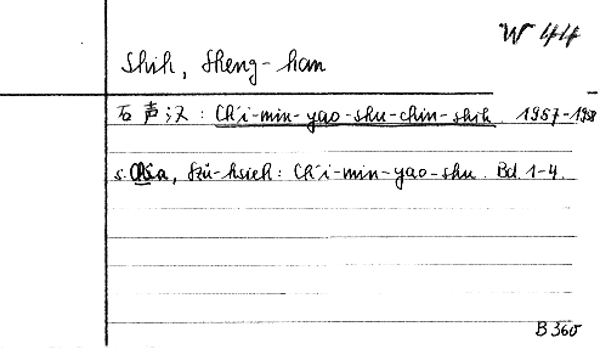 W 44
Shih, Sheng-han
石声汉: Ch'i-min-yao-shu-chin-shih. 1957-1958
s. Chia, Szŭ-hsieh: Ch'i-min-yao-shu. Bd. 1-4.
B 360